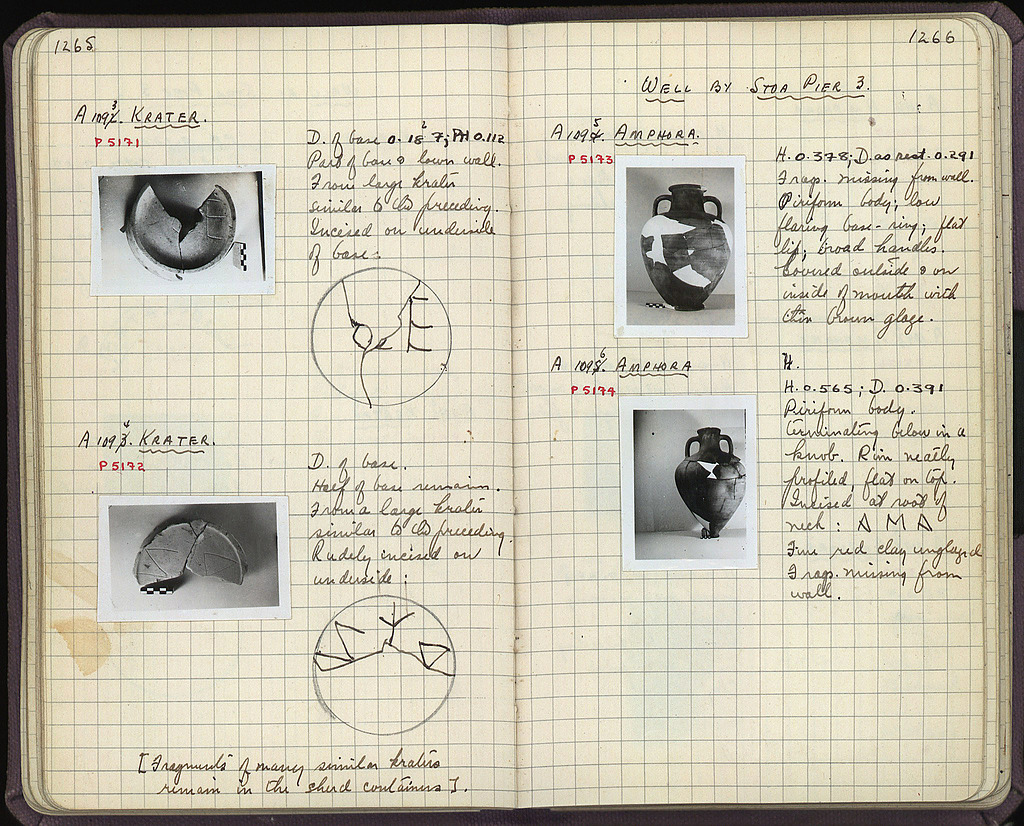 1265
A 1093. KRATER.
P 5171
D. of base 0.187; PH 0.112
Part of base & lower wall.
From large krater
similar to the preceding.
Incised on underside
of base:
A 1094. KRATER.
P 5172
D. of base.
Half of base remains.
From a large krater
similar to the preceding.
Rudely incised on
underside:
[Fragments of many similar kraters
remain in the sherd containers].
1266
WELL BY STOA PIER 3.
A 1095. AMPHORA.
P 5173
H. 0.378; D. as rest. 0.291
Frags. missing from wall.
Piriform body; low
flaring base-ring; flat
lip; broad handles.
Covered outside & on
inside of mouth with
thin brown glaze.
A 1096. AMPHORA
P 5174
H.
H. 0.565; D. 0.391
Piriform body.
terminating below in a
knob. Rim neatly
profiled flat on top.
Incised at root of
neck: Α Μ Α
Fine red clay unglazed
Frags. missing from
wall.